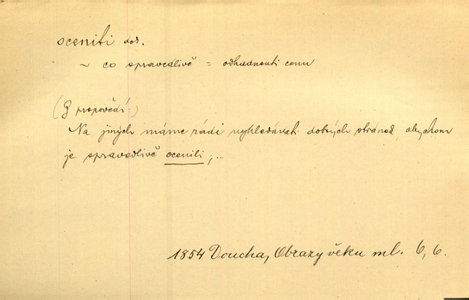 oceniti dok.
~ co spravedlivě = odhadnouti cenu
(Z propovědí:)
Na jiných máme rádi vyhledávati dobrých stránek, abychom
je spravedlivě ocenili, ..
1854 Doucha, Obrazy věku ml. 6, 6.